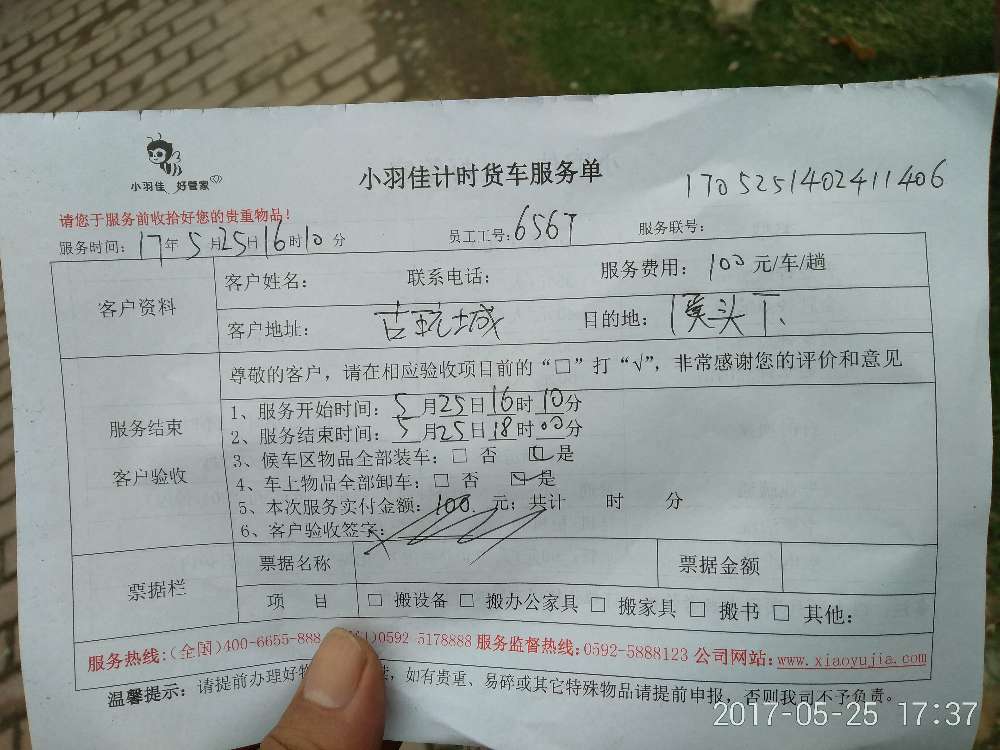 小羽佳 好管家
小羽佳计时货车服务单
1705251402411406
请您于服务前收拾好您的贵重物品！
服务时间：17年5月25日16时10分 员工工号：656T 服务联号：
客户资料
客户姓名： 联系电话： 服务费用：100元/车/趟
客户地址：古玩城 目的地：溪头下
服务结束
客户验收
尊敬的客户，请在相应验收项目前的“□”打“√”，非常感谢您的评价和意见
1、服务开始时间：5月25日16时10分
2、服务结束时间：5月25日18时00分
3、候车区物品全部装车：□ 否 ☑是
4、车上物品全部卸车：□ 否 ☑是
5、本次服务实付金额：100 元；共计 时 分
6、客户验收签字：
票据栏
票据名称 票据金额
项 目 □ 搬设备 □ 搬办公家具 □ 搬家具 □ 搬书 □ 其他：
服务热线：（全国）400-6655-888 0592-5178888 服务监督热线：0592-5888123 公司网站：www.xiaoyujia.com
温馨提示：请提前办理好物 ，如有贵重、易碎或其它特殊物品请提前申报，否则我司不予负责。
2017-05-25 17:37